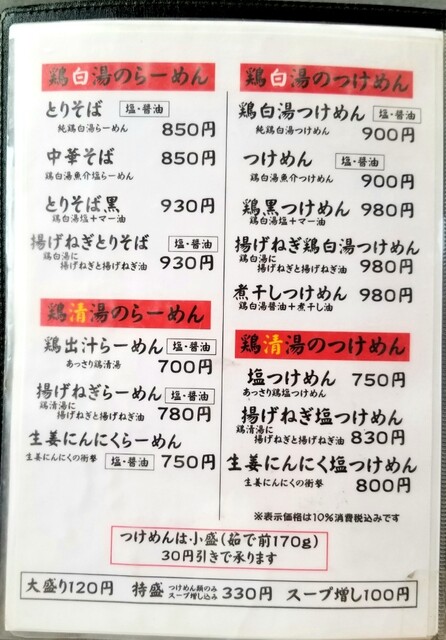 鶏白湯のらーめん
とりそば 塩・醤油
純鶏白湯らーめん 850円
中華そば 850円
鶏白湯魚介塩らーめん
とりそば黒 930円
鶏白湯塩+マー油
揚げねぎとりそば 塩・醤油
鶏白湯に
揚げねぎと揚げねぎ油 930円
鶏清湯のらーめん
鶏出汁らーめん 塩・醤油
あっさり鶏清湯 700円
揚げねぎらーめん 塩・醤油
鶏清湯に
揚げねぎと揚げねぎ油 780円
生姜にんにくらーめん
生姜にんにくの衝撃 塩・醤油 750円
鶏白湯のつけめん
鶏白湯つけめん 塩・醤油
純鶏白湯つけめん 900円
つけめん 塩・醤油
鶏白湯魚介つけめん 900円
鶏黒つけめん 980円
鶏白湯塩+マー油
揚げねぎ鶏白湯つけめん
鶏白湯に
揚げねぎと揚げねぎ油 980円
煮干しつけめん 980円
鶏白湯醤油+煮干し油
鶏清湯のつけめん
塩つけめん 750円
あっさり鶏塩つけめん
揚げねぎ塩つけめん
鶏清湯に
揚げねぎと揚げねぎ油 830円
生姜にんにく塩つけめん
生姜にんにくの衝撃 800円
※表示価格は10%消費税込みです
つけめんは小盛(茹で前170g)
30円引きで承ります
大盛り120円 特盛 つけめん麺のみ スープ増し込み 330円 スープ増し100円